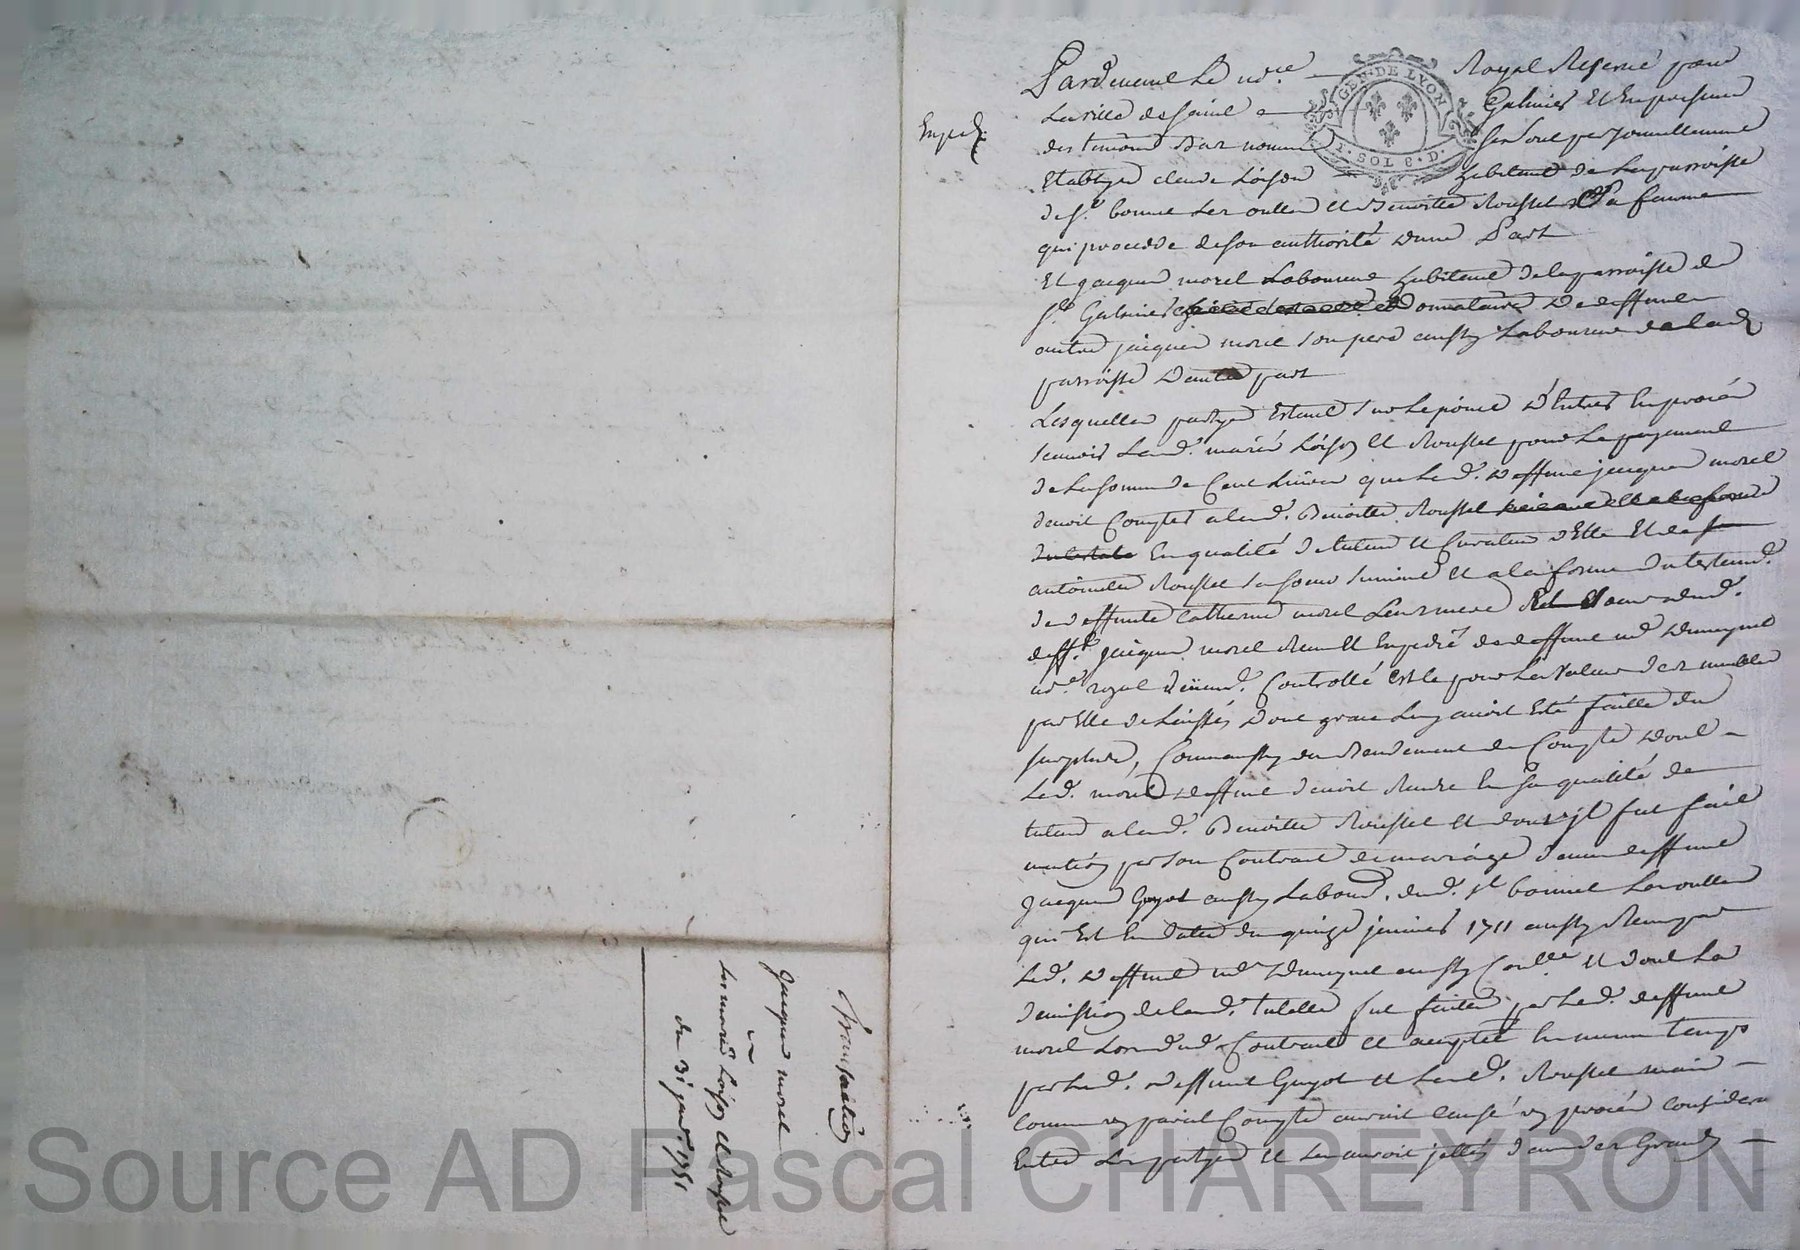 Pardevant Le no.re Royal Reservé pour
La ville de Saint Galmier Et En presence
des temoins Bas nommés furent personnellement
Establyes claude Loison habitant de La parroisse
de S.t bonnet Les oulles et Benoitte Roussel Sa femme
qui procede de son authorité d'une Part
Et jacques morel Laboureur habitant de la parroisse de
S.t Galmier donnataire De deffunt
autre jacques morel son pere aussy Laboureur de lad.
parroisse D'autre part
Expedi.
GEN. DE LYON
1. SOL 8. D.
Lesquelles partyes Estant sur Le point D'Entrer En procés
scavoir Lesd. mariés Loison et Roussel pour Le payement
de La somme de Cent Livres que Led. deffunt jacques morel
devoit Compter a lad. Benoitte Roussel
En qualité de tuteur et Curateur d'Elle Et de
antoinette Roussel sa soeur suivant et a la forme du testam.t
de deffunte Catherine morel Leur mere aud.
deff.t jacques morel Receu et Expedié de deffunt
no.re royal Controllé Est Le pour La valeur des meubles
par Elle delaissés, dont grace Luy auroit Esté faitte du
surplus, Comm'aussy du Rendement de Compte dont
Led. morel deffunt devoit Rendre En sa qualité de
tuteur a lad. Benoitte Roussel et dont jl fut fait
mention par son Contrat de mariage d'avec deffunt
Jacques Guyot aussy Labour. dud. S.t bonnet Les oulles
qui Est En datte du quinze janvier 1711 aussy Receu par
Led. deffunt aussy Con.lle et dont La
demission de lad. tutelle fut faitte par Led. deffunt
morel Lors dud. Contrat et accepté En meme temps
par Led. deffunt Guyot et Lad. Roussel mais
comme un pareil Compte auroit causé un procés considera
Entre Les partyes et Les auroit jettés dans des Grands
Transaction
Jacques morel
Les mariés Loison et Roussel
du 31 janv. 1751
Source AD Pascal CHAREYRON